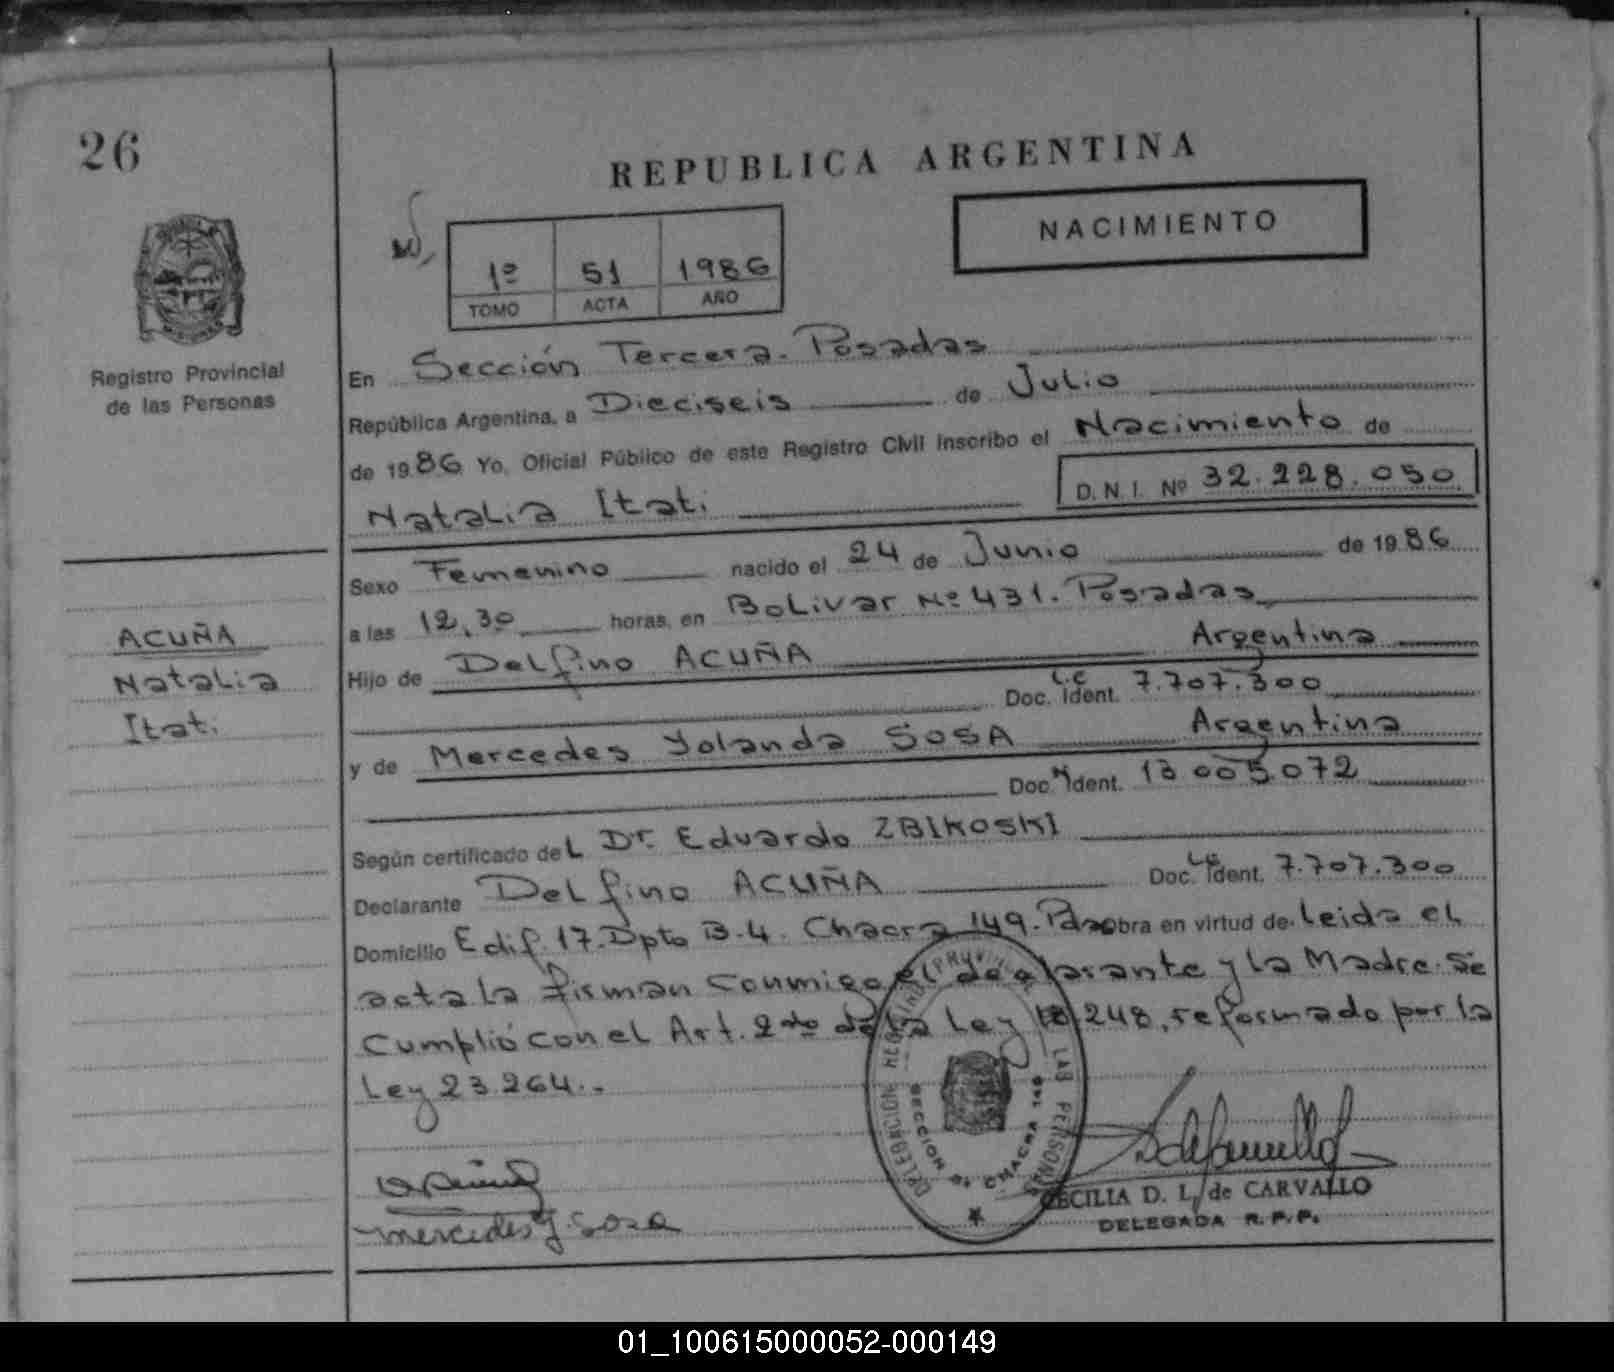 26
REPUBLICA ARGENTINA
NACIMIENTO
1º 51 1986
TOMO ACTA AÑO
Registro Provincial
de las Personas
En Sección Tercera. Posadas
República Argentina, a Dieciseis de Julio
de 1986 Yo, Oficial Público de este Registro Civil inscribo el Nacimiento de
Natalia Itati
D. N. I. Nº 32.228.050
Sexo Femenino nacido el 24 de Junio de 1986
a las 12,30 horas, en Bolivar Nº 431. Posadas
Hijo de Delfino ACUÑA Argentina
L.E
Doc. Ident. 7.707.300
y de Mercedes Yolanda SOSA Argentina
Doc. Ident. 13.005.072
Según certificado del Dr. Eduardo ZBIKOSKI
Declarante Delfino ACUÑA Doc. Ident. 7.707.300
Domicilio Edif. 17. Dpto B.4. Chacra 149. Pdas obra en virtud de. Leida el
acta la firman conmigo el declarante y la Madre. Se
cumplió con el Art. 2do de la Ley 18.248, reformado por la
Ley 23.264..
ACUÑA
Natalia
Itati
mercedes Y. Sosa
DELEGACION REGISTRO PROVINCIAL LAS PERSONAS
SECCION 3ª CHACRA 149
CECILIA D. L. de CARVALLO
DELEGADA R.P.P.
01_100615000052-000149